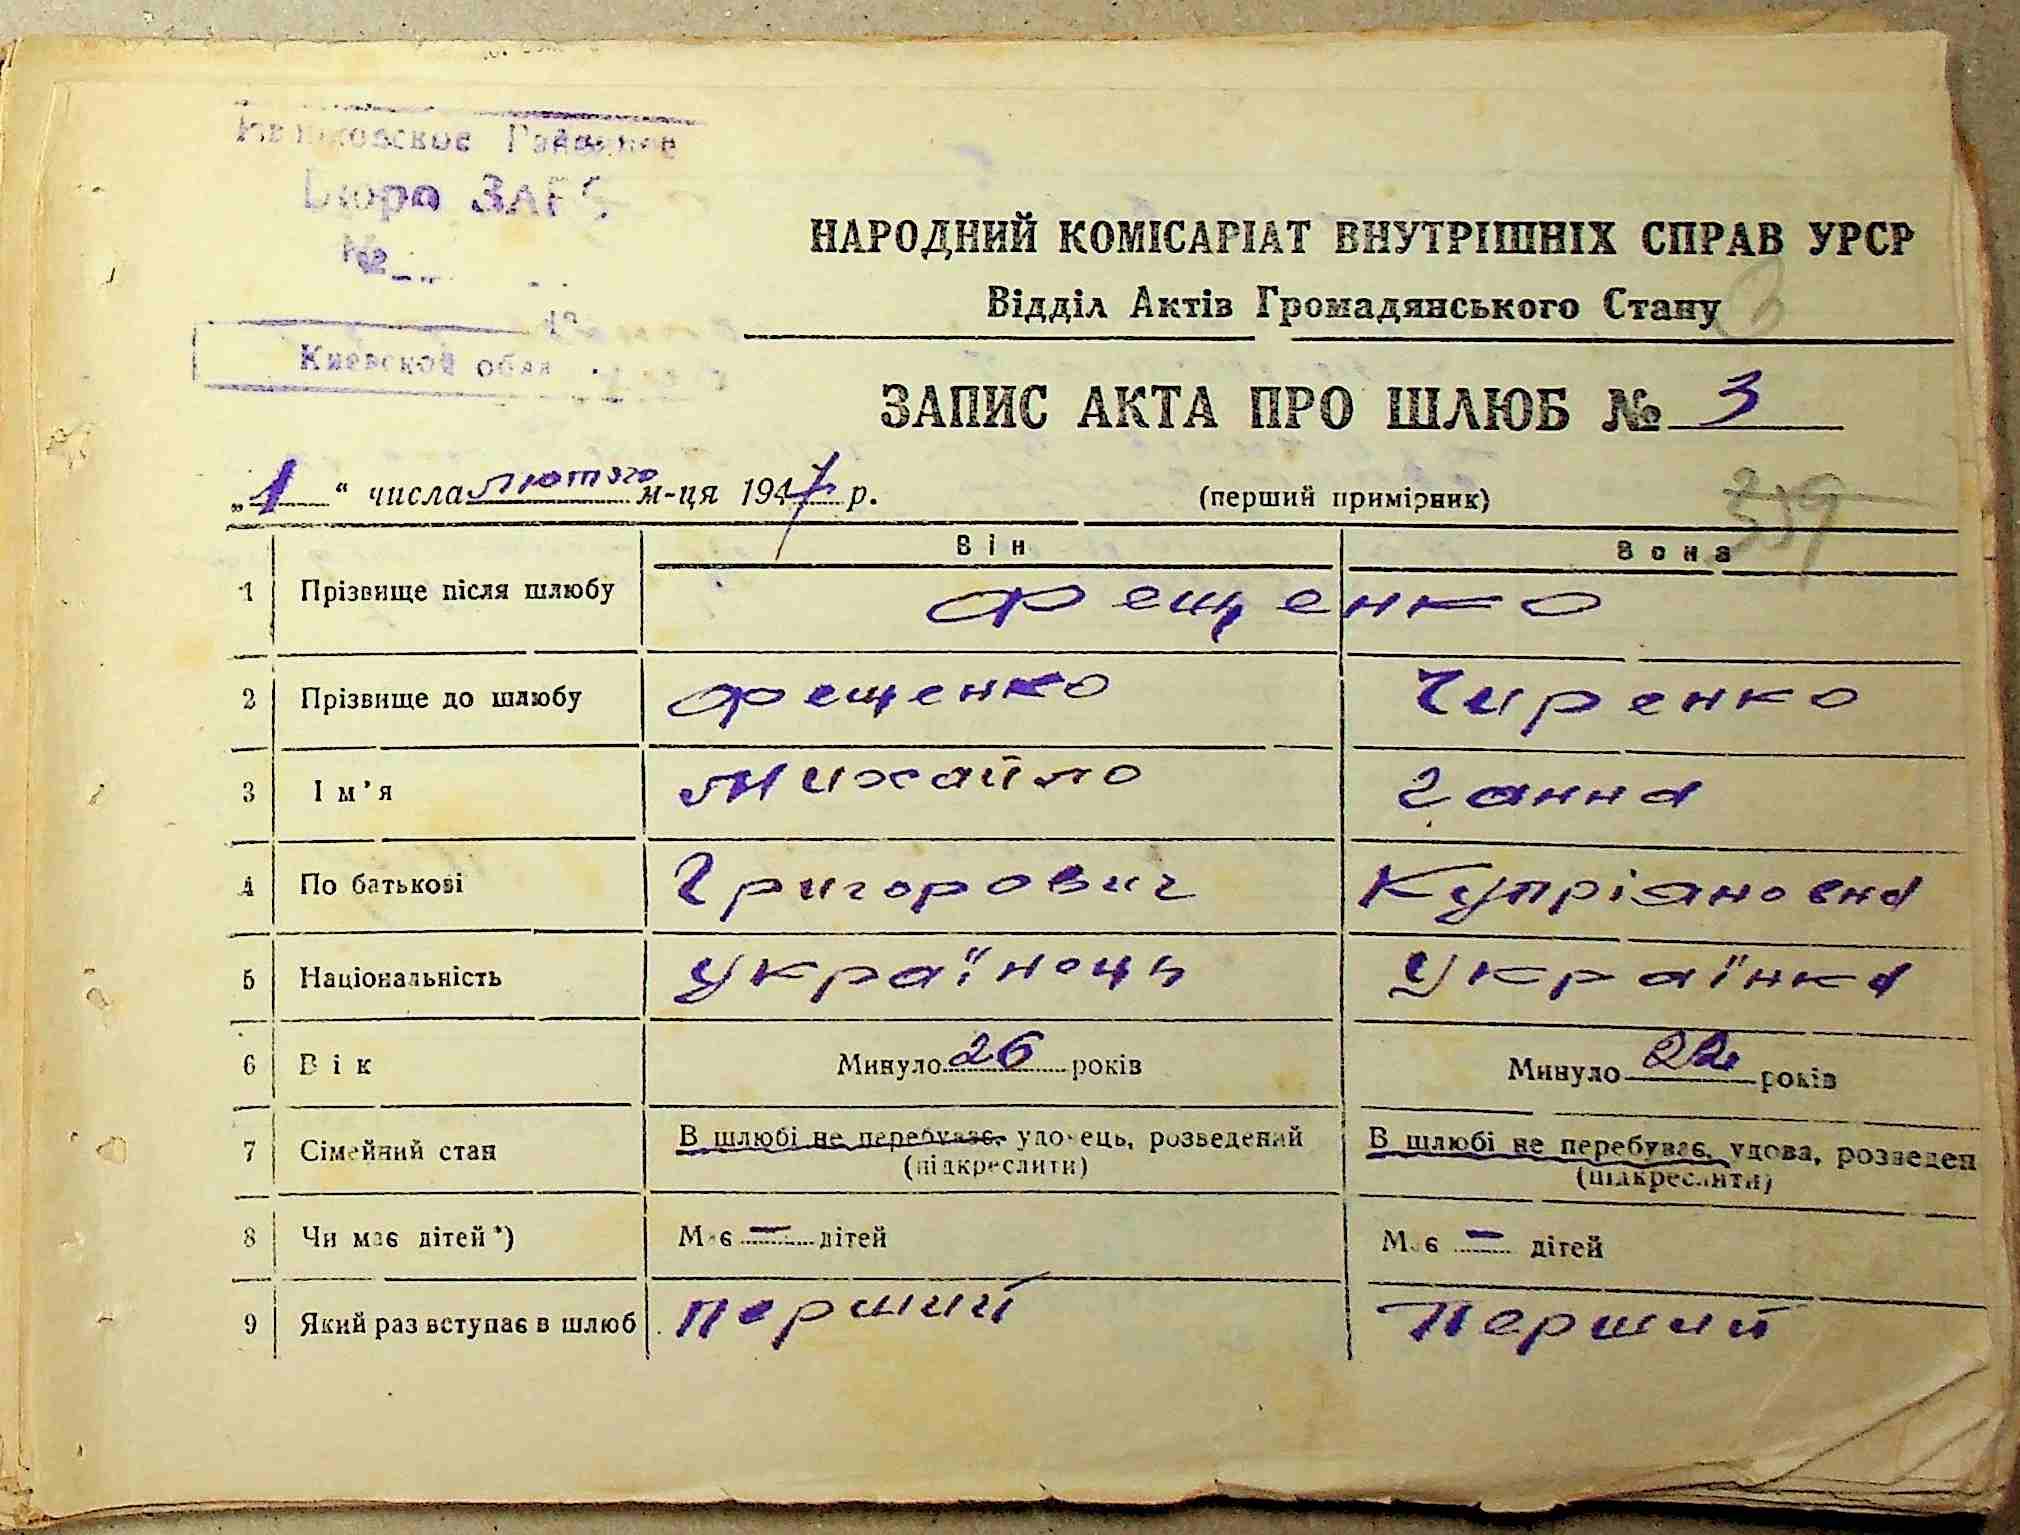 Районное
Бюро ЗАГС
№
Киевской обл
НАРОДНИЙ КОМІСАРІАТ ВНУТРІШНІХ СПРАВ УРСР
Відділ Актів Громадянського Стану
ЗАПИС АКТА ПРО ШЛЮБ № 3
„1“ числа лютого м-ця 1947 р. (перший примірник)
359
Він Вона
1 Прізвище після шлюбу Фещенко
2 Прізвище до шлюбу Фещенко Чиренко
3 Ім’я Михайло Ганна
4 По батькові Григорович Купріяновна
5 Національність Українець Українка
6 Вік Минуло 26 років Минуло 22 років
7 Сімейний стан В шлюбі не перебуває, удовець, розведений В шлюбі не перебуває, удова, розведен
(підкреслити) (підкреслити)
8 Чи має дітей*) Має — дітей Має — дітей
9 Який раз вступає в шлюб Перший Перший